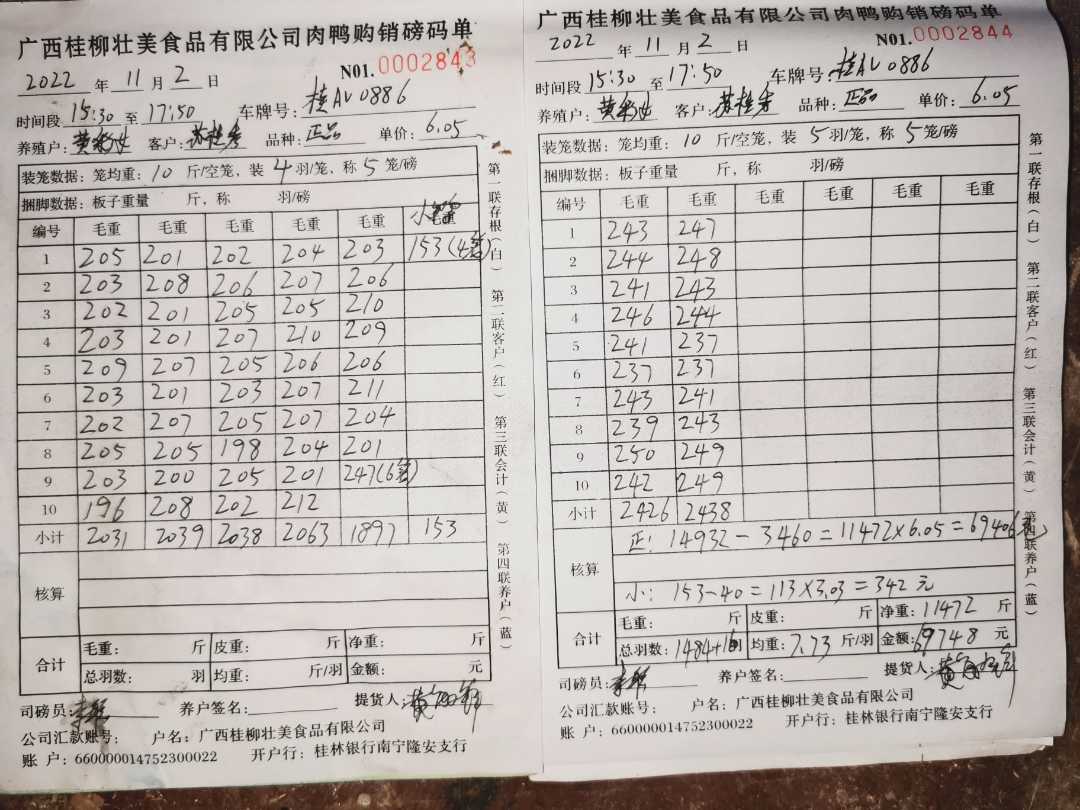 广西桂柳壮美食品有限公司肉鸭购销磅码单
2022 年 11 月 2 日 N01.0002843
时间段 15:30 至 17:50 车牌号: 桂AV0886
养殖户: 客户: 品种: 正品 单价: 6.05
装笼数据: 笼均重: 10 斤/空笼, 装 4 羽/笼, 称 5 笼/磅
捆脚数据: 板子重量 斤, 称 羽/磅
编号 毛重 毛重 毛重 毛重 毛重 小
1 205 201 202 204 203 153(4笼)
2 203 208 206 207 206
3 202 201 205 205 210
4 203 201 207 210 209
5 209 207 205 206 206
6 203 201 203 207 211
7 202 207 205 207 204
8 205 205 198 204 201
9 203 200 205 201 247(6笼)
10 196 208 202 212
小计 2031 2039 2038 2063 1897 153
核算
合计 毛重: 斤 皮重: 斤 净重: 斤
总羽数: 羽 均重: 斤/羽 金额: 元
司磅员: 养户签名: 提货人:
公司汇款账号: 户名: 广西桂柳壮美食品有限公司
账 户: 660000014752300022 开户行: 桂林银行南宁隆安支行
第一联存根(白) 第二联客户(红) 第三联会计(黄) 第四联养户(蓝)
广西桂柳壮美食品有限公司肉鸭购销磅码单
2022 年 11 月 2 日 N01.0002844
时间段 15:30 至 17:50 车牌号: 桂AV0886
养殖户: 客户: 品种: 正品 单价: 6.05
装笼数据: 笼均重: 10 斤/空笼, 装 5 羽/笼, 称 5 笼/磅
捆脚数据: 板子重量 斤, 称 羽/磅
编号 毛重 毛重 毛重 毛重 毛重 毛重
1 243 247
2 244 248
3 241 243
4 246 244
5 241 237
6 237 237
7 243 241
8 239 243
9 250 249
10 242 249
小计 2426 2438
正: 14932-3460=11472×6.05=69406元
核算
小: 153-40=113×3.03=342元
合计 毛重: 斤 皮重: 斤 净重: 11472 斤
总羽数: 1484+16羽 均重: 7.73 斤/羽 金额: 69748 元
司磅员: 养户签名: 提货人:
公司汇款账号: 户名: 广西桂柳壮美食品有限公司
账 户: 660000014752300022 开户行: 桂林银行南宁隆安支行
第一联存根(白) 第二联客户(红) 第三联会计(黄) 第四联养户(蓝)